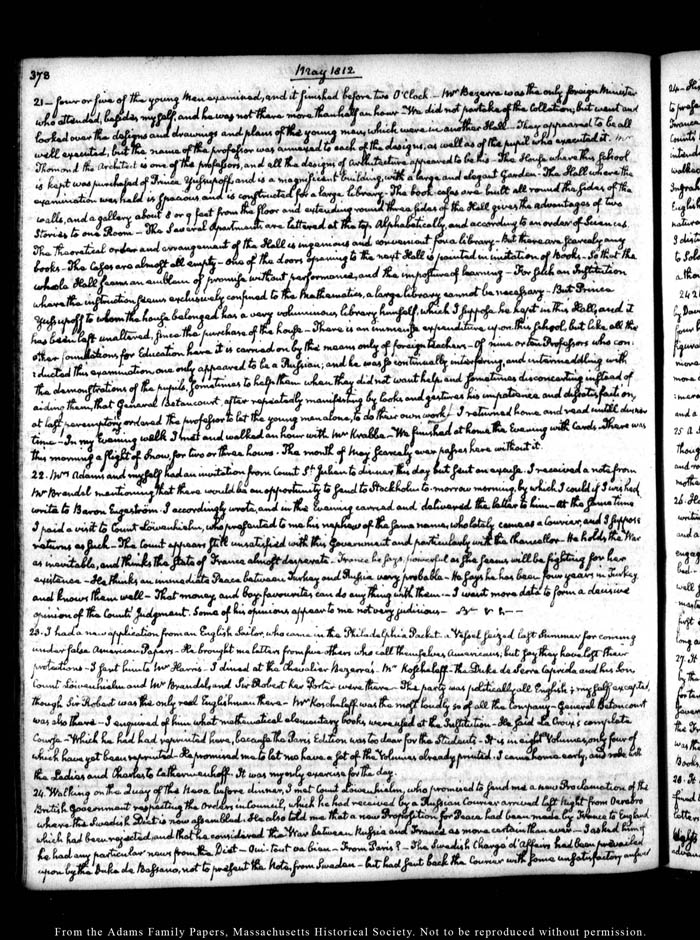 378
May 1812
21 — four or five of the young Men examined, and it finished before two O'Clock — Mr Bezerra was the only foreign Minister
who attended, besides myself, and he was not there more than half an hour — We did not partake of the Collation, but went and
looked over the designs and drawings and plans of the young men, which were in another Hall — They appeared to be all
well executed, but the name of the professor was annexed to each of the designs, as well as of the pupil who executed it. Mr
Thomond the Architect is one of the professors, and all the designs of Architecture appeared to be his — The House where this School
is kept was purchased of Prince Yussupoff, and is a magnificent building, with a large and elegant Garden — The Hall where the
examination was held is spacious and is constructed for a large library. The book-cases are built all round the sides of the
walls, and a gallery about 8 or 9 feet from the floor and extending round three sides of the Hall gives the advantages of two
Stories to one Room — The several apartments are lettered at the top, Alphabetically, and according to an order of Sciences.
The theoretical order and arrangement of the Hall is ingenious and convenient for a library — But there are scarcely any
books — The Cases are almost all empty — One of the doors opening to the next Hall is painted in imitation of Books — So that the
whole Hall seems an emblem of promise without performance, and the imposture of learning — For such an Institution
where the instruction seems exclusively confined to the Mathematics, a large library cannot be necessary — But Prince
Yussupoff to whom the house belonged has a very voluminous library himself, which I suppose he kept in this Hall, and it
has been left unaltered, since the purchase of the house — There is an immense expenditure upon this School, but like all the
other foundations for Education here, it is carried on by the means only of foreign teachers — Of nine or ten Professors who con-
ducted this examination, one only appeared to be a Russian; and he was so continually interfering, and intermeddling with
the demonstrations of the pupils, sometimes to help them when they did not want help and sometimes disconcerting instead of
aiding them, that General Betancourt, after repeatedly manifesting by looks and gestures his impatience and dissatisfaction,
at last peremptorily ordered the professor to let the young men alone, to do their own work. I returned home and read until dinner
time — In my Evening walk I met and walked an hour with Mr Krabbe — We finished at home the Evening with Cards. There was
this morning a flight of Snow, for two or three hours. The month of May scarcely ever passes here without it.
22. Mrs Adams and myself had an invitation from Count St. Julien to dinner this day but sent an excuse. I received a note from
Mr Brandel mentioning that there would be an opportunity to send to Stockholm to-morrow morning, by which I could if I wished
write to Baron Engeström. I accordingly wrote, and in the evening carried and delivered the letter to him — At the same time
I paid a visit to Count Löwenhielm, who presented to me his nephew of the same name, who lately came as a Courier, and I suppose
returns as such — The Count appears still unsatisfied with this Government and particularly with the Chancellor — He holds the War
as inevitable, and thinks the State of France almost desperate. France he says, powerful as she seems will be fighting for her
existence — He thinks an immediate Peace between Turkey and Russia very probable — He says he has been four years in Turkey
and knows them well — That money, and boy favourites can do any thing with them — I want more data to form a decisive
opinion of the Count's Judgment. Some of his opinions appear to me not very judicious —
23. I had a new application from an English Sailor, who came in the Philadelphia Packet. a Vessel seized last Summer for coming
under false American Papers — He brought me letters from five others who call themselves Americans; but say they have lost their
protections — I sent him to Mr Harris. I dined at the Chevalier Bezerra's. Mr Koschaloff — the Duke de Serra Capriola and his Son
Count Löwenhielm and Mr Brandel, and Sir Robert Ker Porter were there — The party was politically all English; myself excepted,
though Sir Robert was the only real Englishman there — Mr Koschaloff was the most loudly so of all the Company — General Betancourt
was also there — I enquired of him what mathematical elementary books were used at the Institution — He said La Croix's complete
Course — Which he had had reprinted here, because the Paris Edition was too dear for the Students — It is in eight Volumes, only four of
which have yet been reprinted. He promised to let me have a set of the Volumes already printed. I came home early, and rode with
the Ladies and Charles to Catherinenhoff. It was my only exercise for the day.
24. Walking on the Quay of the Neva before dinner, I met Count Löwenhielm, who promised to send me a new Proclamation of the
British Government respecting the Orders in Council, which he had received by a Russian Courier arrived last Night from Orebro
where the Swedish Diet is now assembled. He also told me that a new Proposition for Peace had been made by France to England
which had been rejected, and that he considered the War between Russia and France as more certain than ever — I asked him if
he had any particular news from the Diet — Oui-tout va bien — From Paris? — The Swedish Chargé d'Affaires had been prevailed
upon by the Duke de Bassano, not to present the Note from Sweden — but had sent back the Courier with some unsatisfactory answer
From the Adams Family Papers, Massachusetts Historical Society. Not to be reproduced without permission.